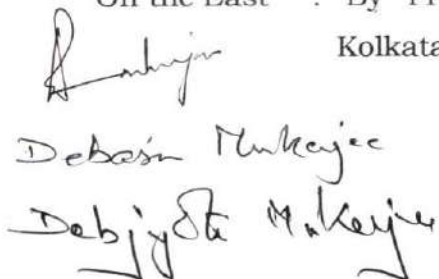 On the East : By
Kolkata
Debasis Mukerjee
Debjyoti Mukerjee